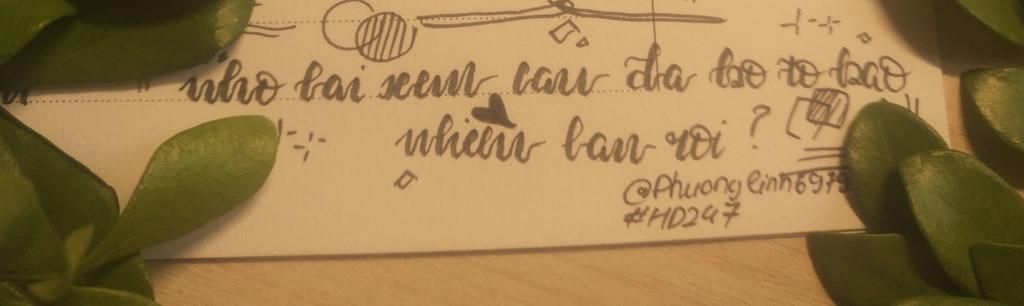 " nho lai xem cau đa bo to bao "
nhieu lan roi ?
@Phuonglinh6979
#HD247